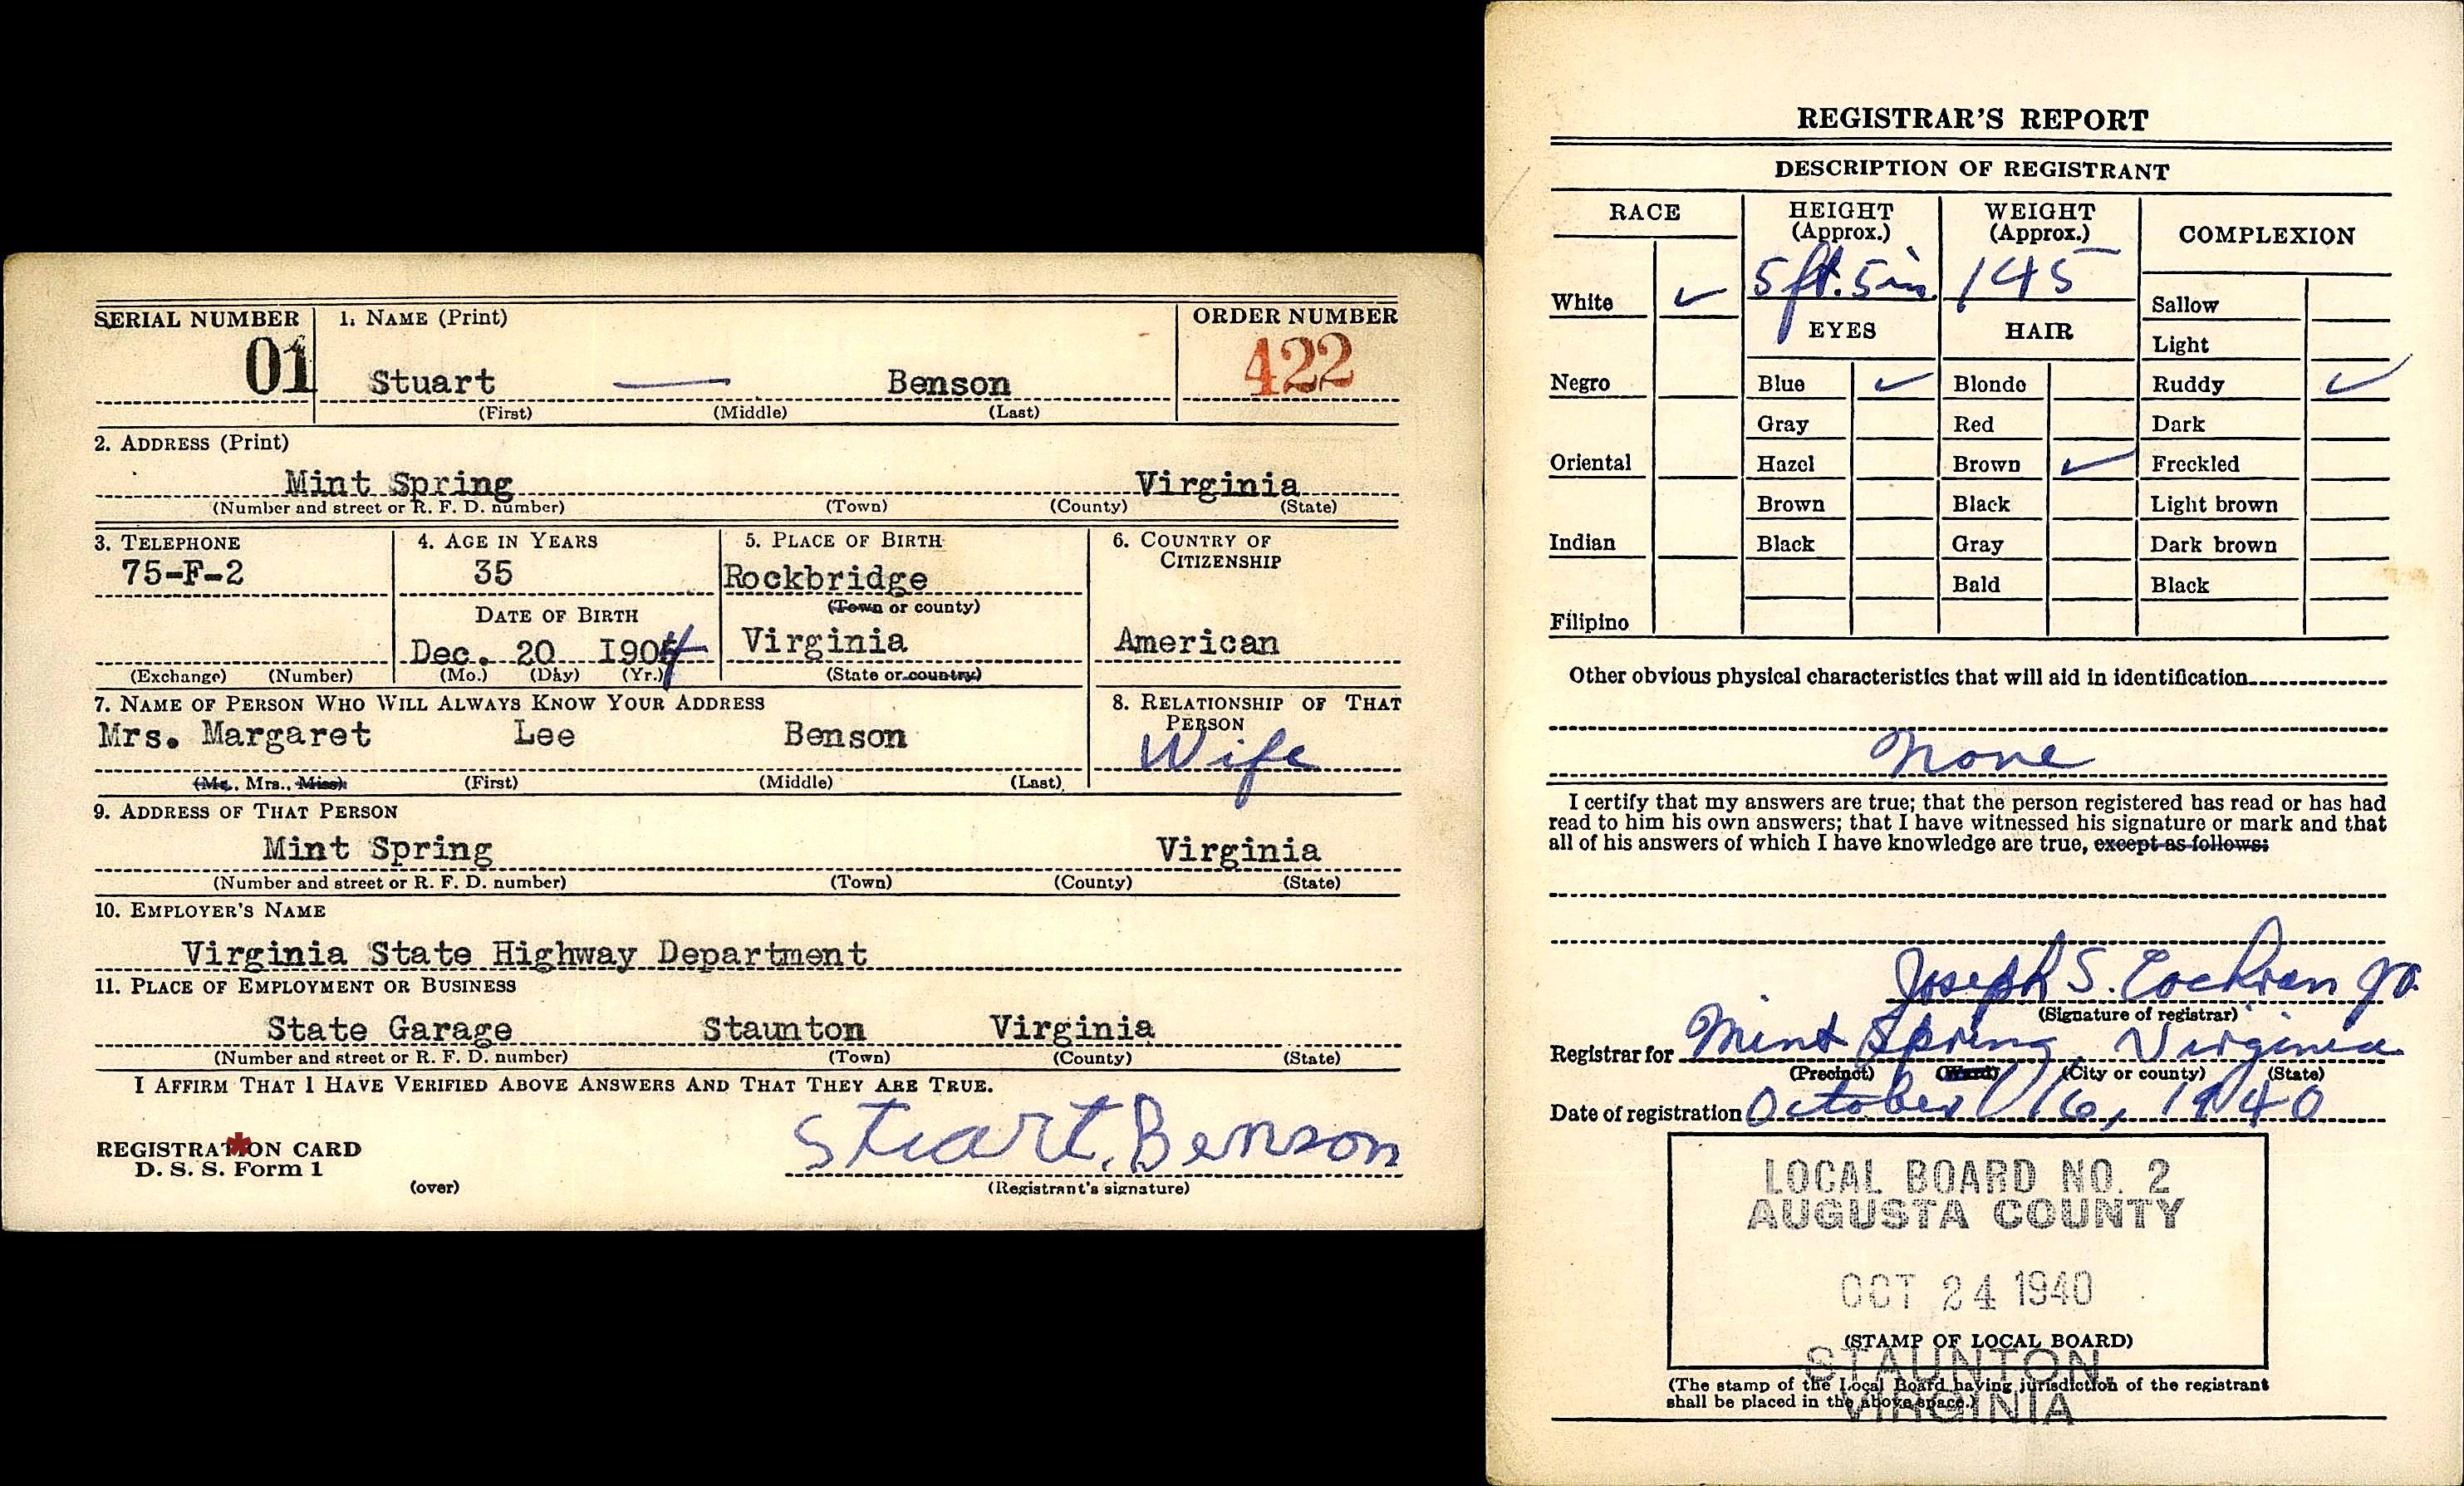 SERIAL NUMBER 1. NAME (Print) ORDER NUMBER
01 Stuart — Benson 422
(First) (Middle) (Last)
2. ADDRESS (Print)
Mint Spring Virginia
(Number and street or R. F. D. number) (Town) (County) (State)
3. TELEPHONE 4. AGE IN YEARS 5. PLACE OF BIRTH 6. COUNTRY OF
CITIZENSHIP
75-F-2 35 Rockbridge
(Town or county)
DATE OF BIRTH
Dec. 20 1904 Virginia American
(Exchange) (Number) (Mo.) (Day) (Yr.) (State or country)
7. NAME OF PERSON WHO WILL ALWAYS KNOW YOUR ADDRESS 8. RELATIONSHIP OF THAT
PERSON
Mrs. Margaret Lee Benson Wife
(Mr., Mrs., Miss) (First) (Middle) (Last)
9. ADDRESS OF THAT PERSON
Mint Spring Virginia
(Number and street or R. F. D. number) (Town) (County) (State)
10. EMPLOYER'S NAME
Virginia State Highway Department
11. PLACE OF EMPLOYMENT OR BUSINESS
State Garage Staunton Virginia
(Number and street or R. F. D. number) (Town) (County) (State)
I AFFIRM THAT I HAVE VERIFIED ABOVE ANSWERS AND THAT THEY ARE TRUE.
REGISTRATION CARD
D. S. S. Form 1
(over)
Stuart. Benson
(Registrant's signature)
REGISTRAR'S REPORT
DESCRIPTION OF REGISTRANT
RACE HEIGHT WEIGHT COMPLEXION
(Approx.) (Approx.)
White ✓ 5 ft. 5 in 145 Sallow
EYES HAIR Light
Negro Blue ✓ Blonde Ruddy ✓
Gray Red Dark
Oriental Hazel Brown ✓ Freckled
Brown Black Light brown
Indian Black Gray Dark brown
Bald Black
Filipino
Other obvious physical characteristics that will aid in identification
None
I certify that my answers are true; that the person registered has read or has had
read to him his own answers; that I have witnessed his signature or mark and that
all of his answers of which I have knowledge are true, except as follows:
Joseph S. Cochran Jr.
(Signature of registrar)
Registrar for Mint Spring, Virginia
(Precinct) (Ward) (City or county) (State)
Date of registration October 16, 1940
LOCAL BOARD NO. 2
AUGUSTA COUNTY
OCT 24 1940
(STAMP OF LOCAL BOARD)
STAUNTON,
(The stamp of the Local Board having jurisdiction of the registrant
shall be placed in the above space.)
VIRGINIA